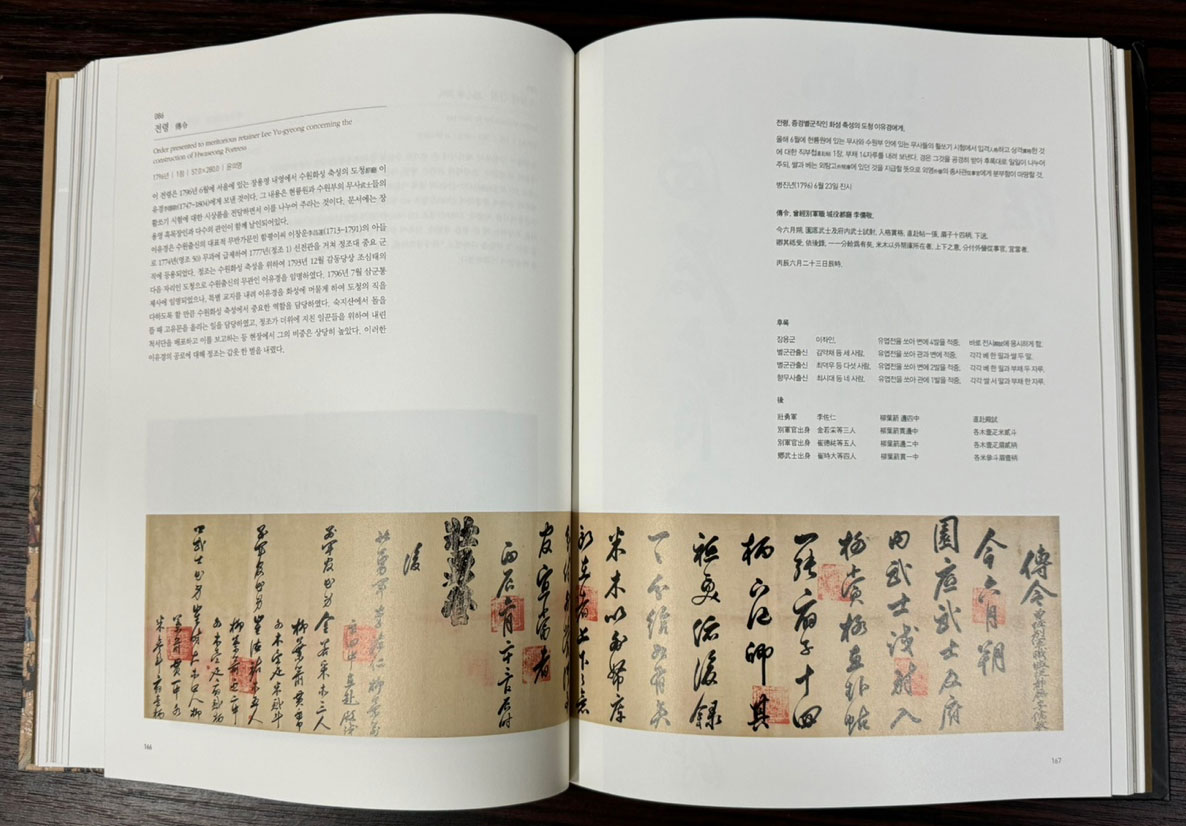 086
전령 傳令
Order presented to meritorious retainer Lee Yu-gyeong concerning the
construction of Hwaseong Fortress
1796년 | 1첩 | 57.0×280.0 | 윤의영
이 전령은 1796년 6월에 서울에 있는 장용영 내영에서 수원화성 축성의 도청都廳 이
유경李儒敬(1747~1804)에게 보낸 것이다. 그 내용은 현륭원과 수원부의 무사武士들의
활쏘기 시험에 대한 시상품을 전달하면서 이를 나누어 주라는 것이다. 문서에는 장
용영 흑목장인과 다수의 관인이 함께 날인되어있다.
이유경은 수원출신의 대표적 무반가문인 함평이씨 이창운李昌運(1713~1791)의 아들
로 1774년(영조 50) 무과에 급제하여 1777년(정조 1) 선전관을 거쳐 정조대 중요 군
직에 등용되었다. 정조는 수원화성 축성을 위하여 1793년 12월 감동당상 조심태의
다음 자리인 도청으로 수원출신의 무관인 이유경을 임명하였다. 1796년 7월 삼군통
제사에 임명되었으나, 특별 교지를 내려 이유경을 화성에 머물게 하여 도청의 직을
다하도록 할 만큼 수원화성 축성에서 중요한 역할을 담당하였다. 숙지산에서 돌을
뜰 때 고유문을 올리는 일을 담당하였고, 정조가 더위에 지친 일꾼들을 위하여 내린
척서단을 배포하고 이를 보고하는 등 현장에서 그의 비중은 상당히 높았다. 이러한
이유경의 공로에 대해 정조는 갑옷 한 벌을 내렸다.
166
전령, 증경별군직인 화성 축성의 도청 이유경에게.
올해 6월에 현륭원에 있는 무사와 수원부 안에 있는 무사들의 활쏘기 시험에서 입격하고 상격한 것
에 대한 직부첩 1장, 부채 14자루를 내려 보낸다. 경은 그것을 공경히 받아 후록대로 일일이 나누어
주되, 쌀과 베는 외탕고에 있던 것을 지급할 뜻으로 외영의 종사관에게 분부함이 마땅할 것.
병진년(1796) 6월 23일 진시
傳令, 曾經別軍職 城役都廳 李儒敬.
今六月朔, 園底武士及府內武士試射, 入格賞格, 直赴帖一張, 扇子十四柄, 下送,
卿其祗受, 依後錄, 一一分給爲有矣, 米木以外帑庫所在者, 上下之意, 分付外營從事官, 宜當者.
丙辰六月二十三日辰時.
후록
장용군 이좌인, 유엽전을 쏘아 변에 4발을 적중, 바로 전시殿試에 응시하게 함.
별군관출신 김약채 등 세 사람, 유엽전을 쏘아 관과 변에 적중, 각각 베 한 필과 쌀 두 말.
별군관출신 최덕우 등 다섯 사람, 유엽전을 쏘아 변에 2발을 적중, 각각 베 한 필과 부채 두 자루.
향무사출신 최시대 등 네 사람, 유엽전을 쏘아 관에 1발을 적중, 각각 쌀 서 말과 부채 한 자루.
後
壯勇軍 李佐仁 柳葉箭 邊四中 直赴殿試
別軍官出身 金若采等三人 柳葉箭貫邊中 各木壹疋米貳斗
別軍官出身 崔德祐等五人 柳葉箭邊二中 各木壹疋扇貳柄
鄕武士出身 崔時大等四人 柳葉箭貫一中 各米參斗扇壹柄
傳令
今六月朔
園底武士及府
內武士試射入
格賞格直赴帖
一張扇子十四
柄下送卿其
祗受依後錄
一一分給爲有矣
米木以外帑庫
宜當者
丙辰六月
後
167